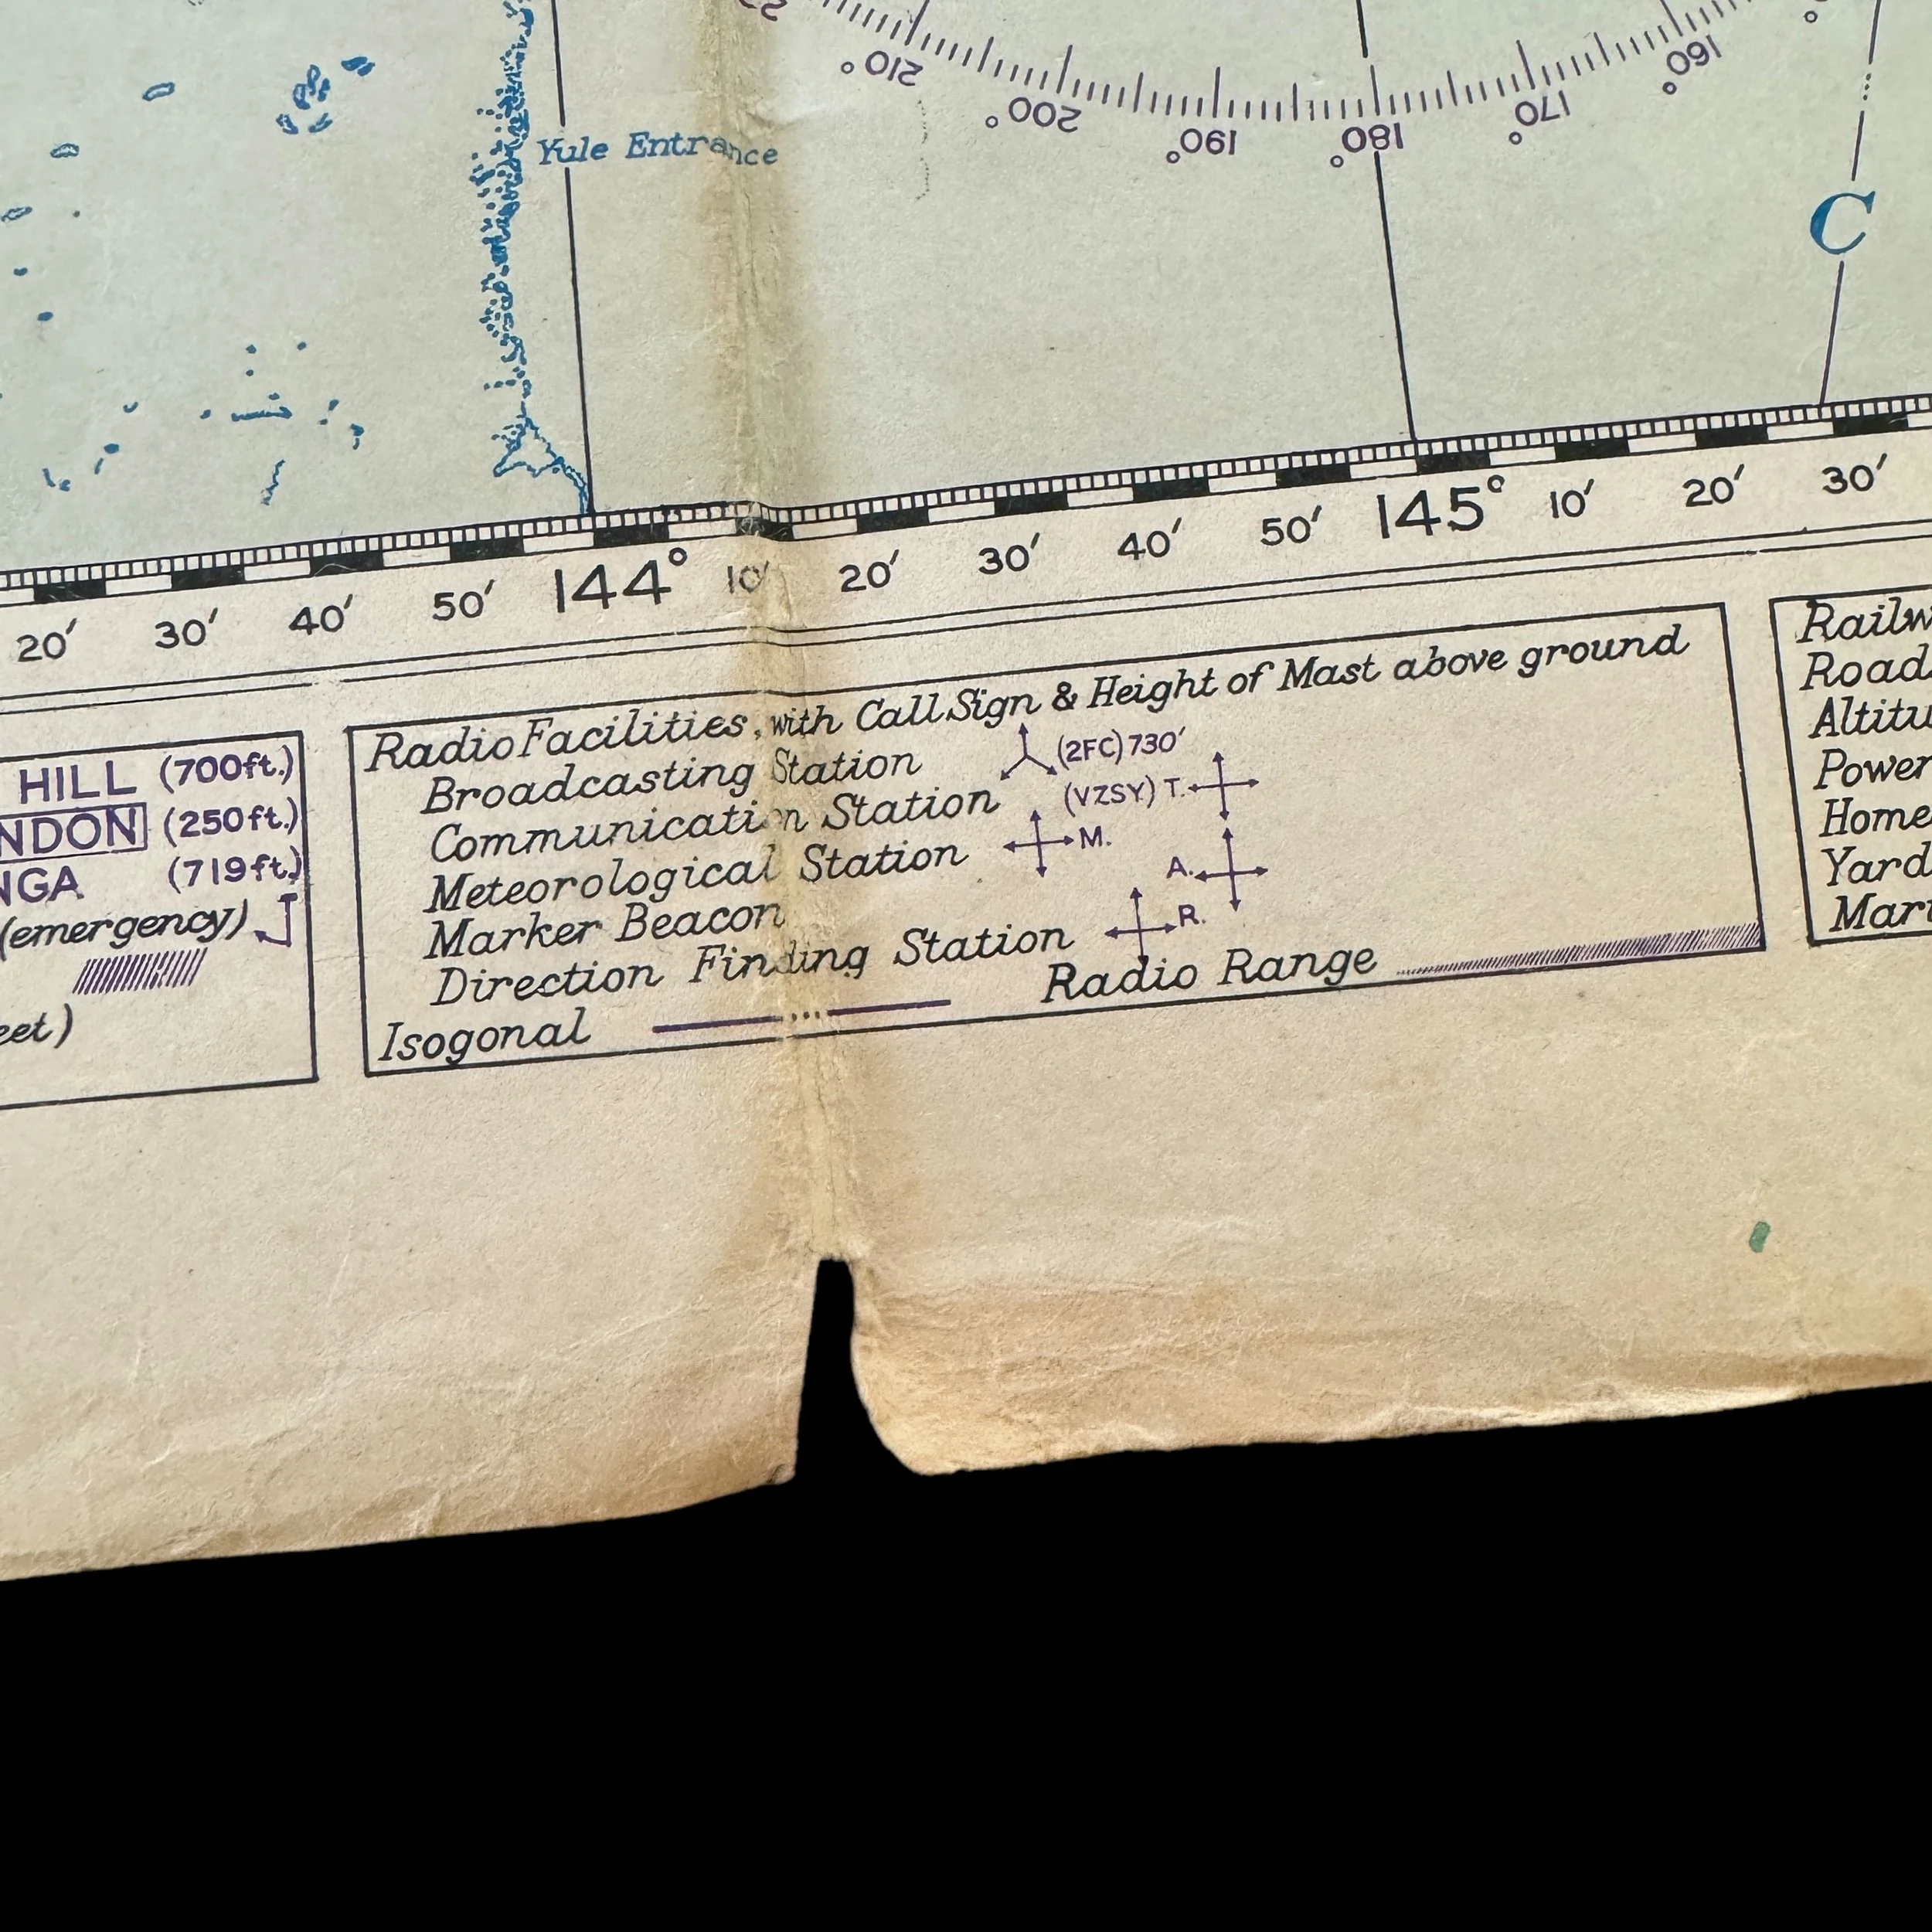 210°
200°
190°
180°
170°
160°
Yule Entrance
C
20′ 30′ 40′ 50′ 144° 10′ 20′ 30′ 40′ 50′ 145° 10′ 20′ 30′
HILL (700ft.)
NDON (250ft.)
NGA (719ft.)
(emergency)
eet)
Radio Facilities, with Call Sign & Height of Mast above ground
Broadcasting Station (2FC) 730′
Communication Station (VZSY) T.
Meteorological Station M.
Marker Beacon A.
Direction Finding Station R.
Isogonal Radio Range
Railw
Road
Altitu
Power
Home
Yard
Mar